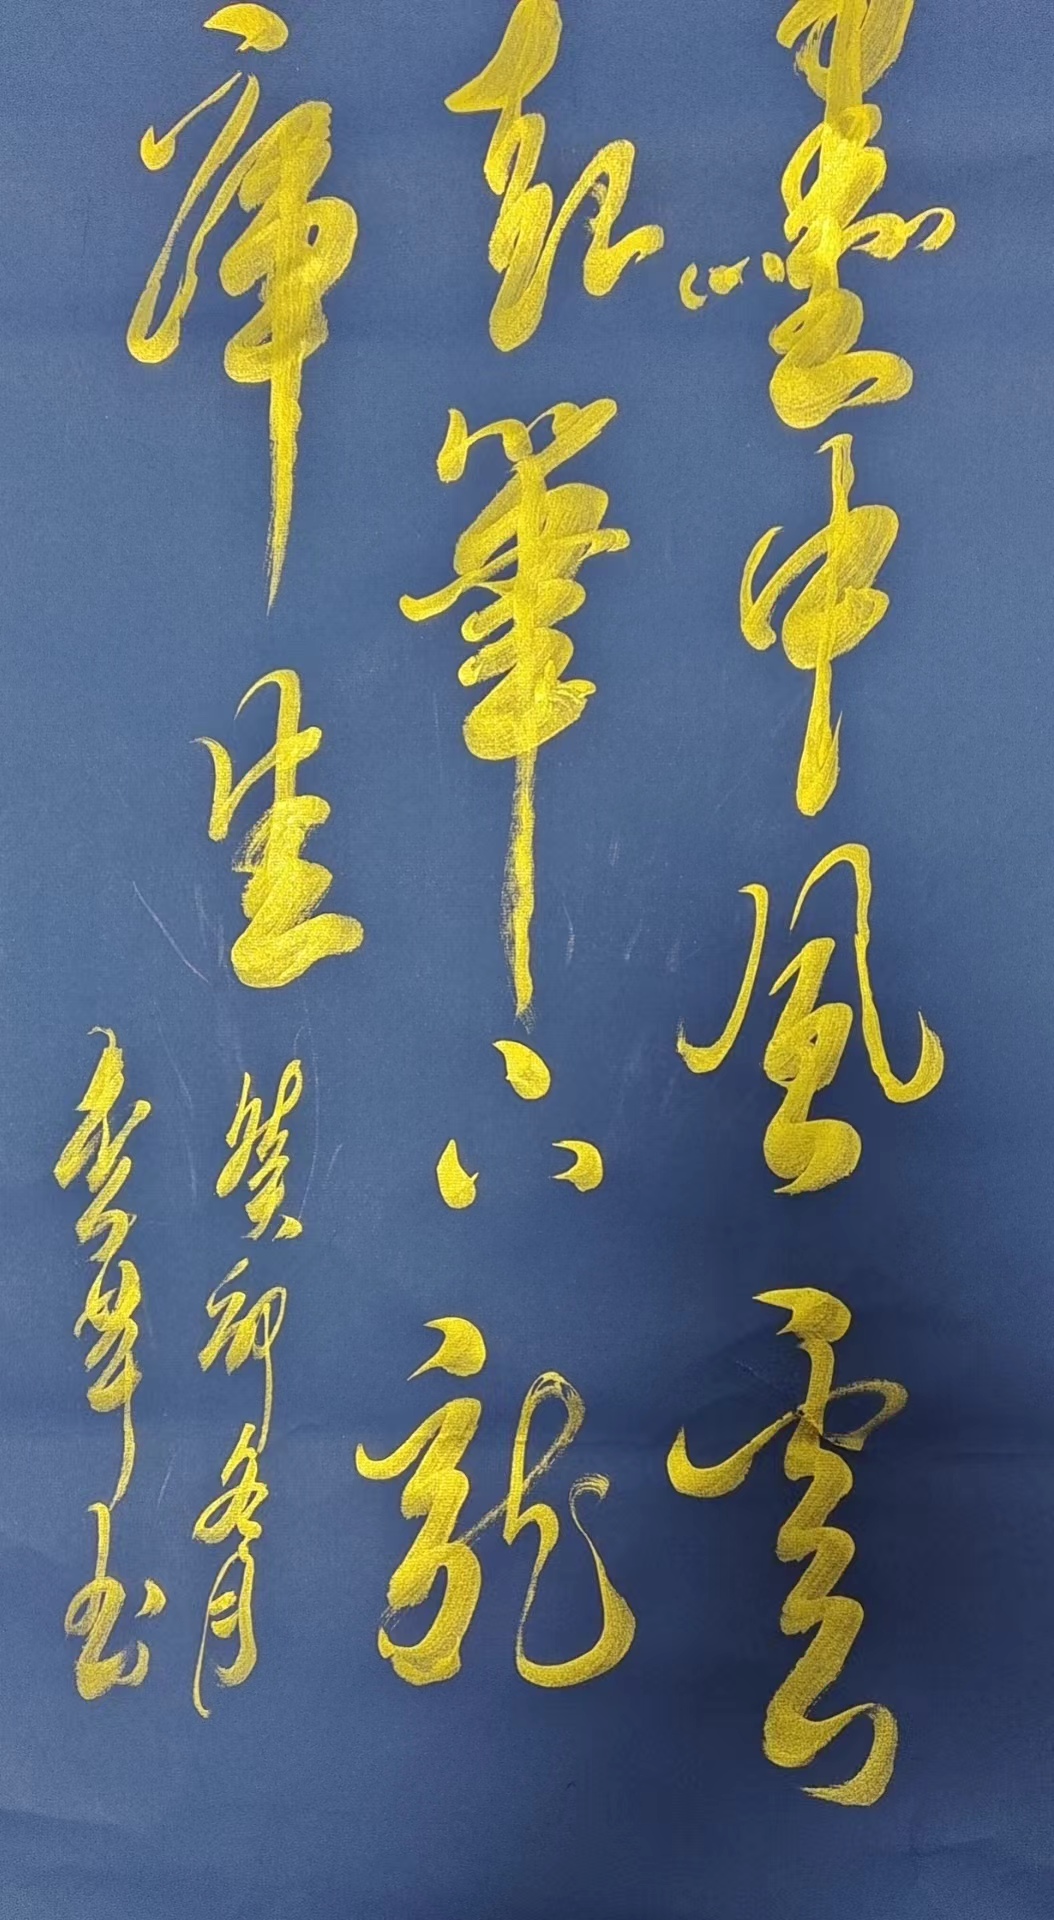 墨中風雲
起筆下龍
庠生
癸卯冬月
書